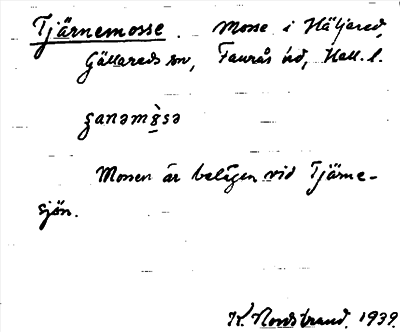 Tjärnemosse. Mosse i Häljared,
Gällareds sn, Faurås hd, Hall. l.
Mossen är belägen vid Tjärne-
sjön.
K. Nordstrand. 1939.